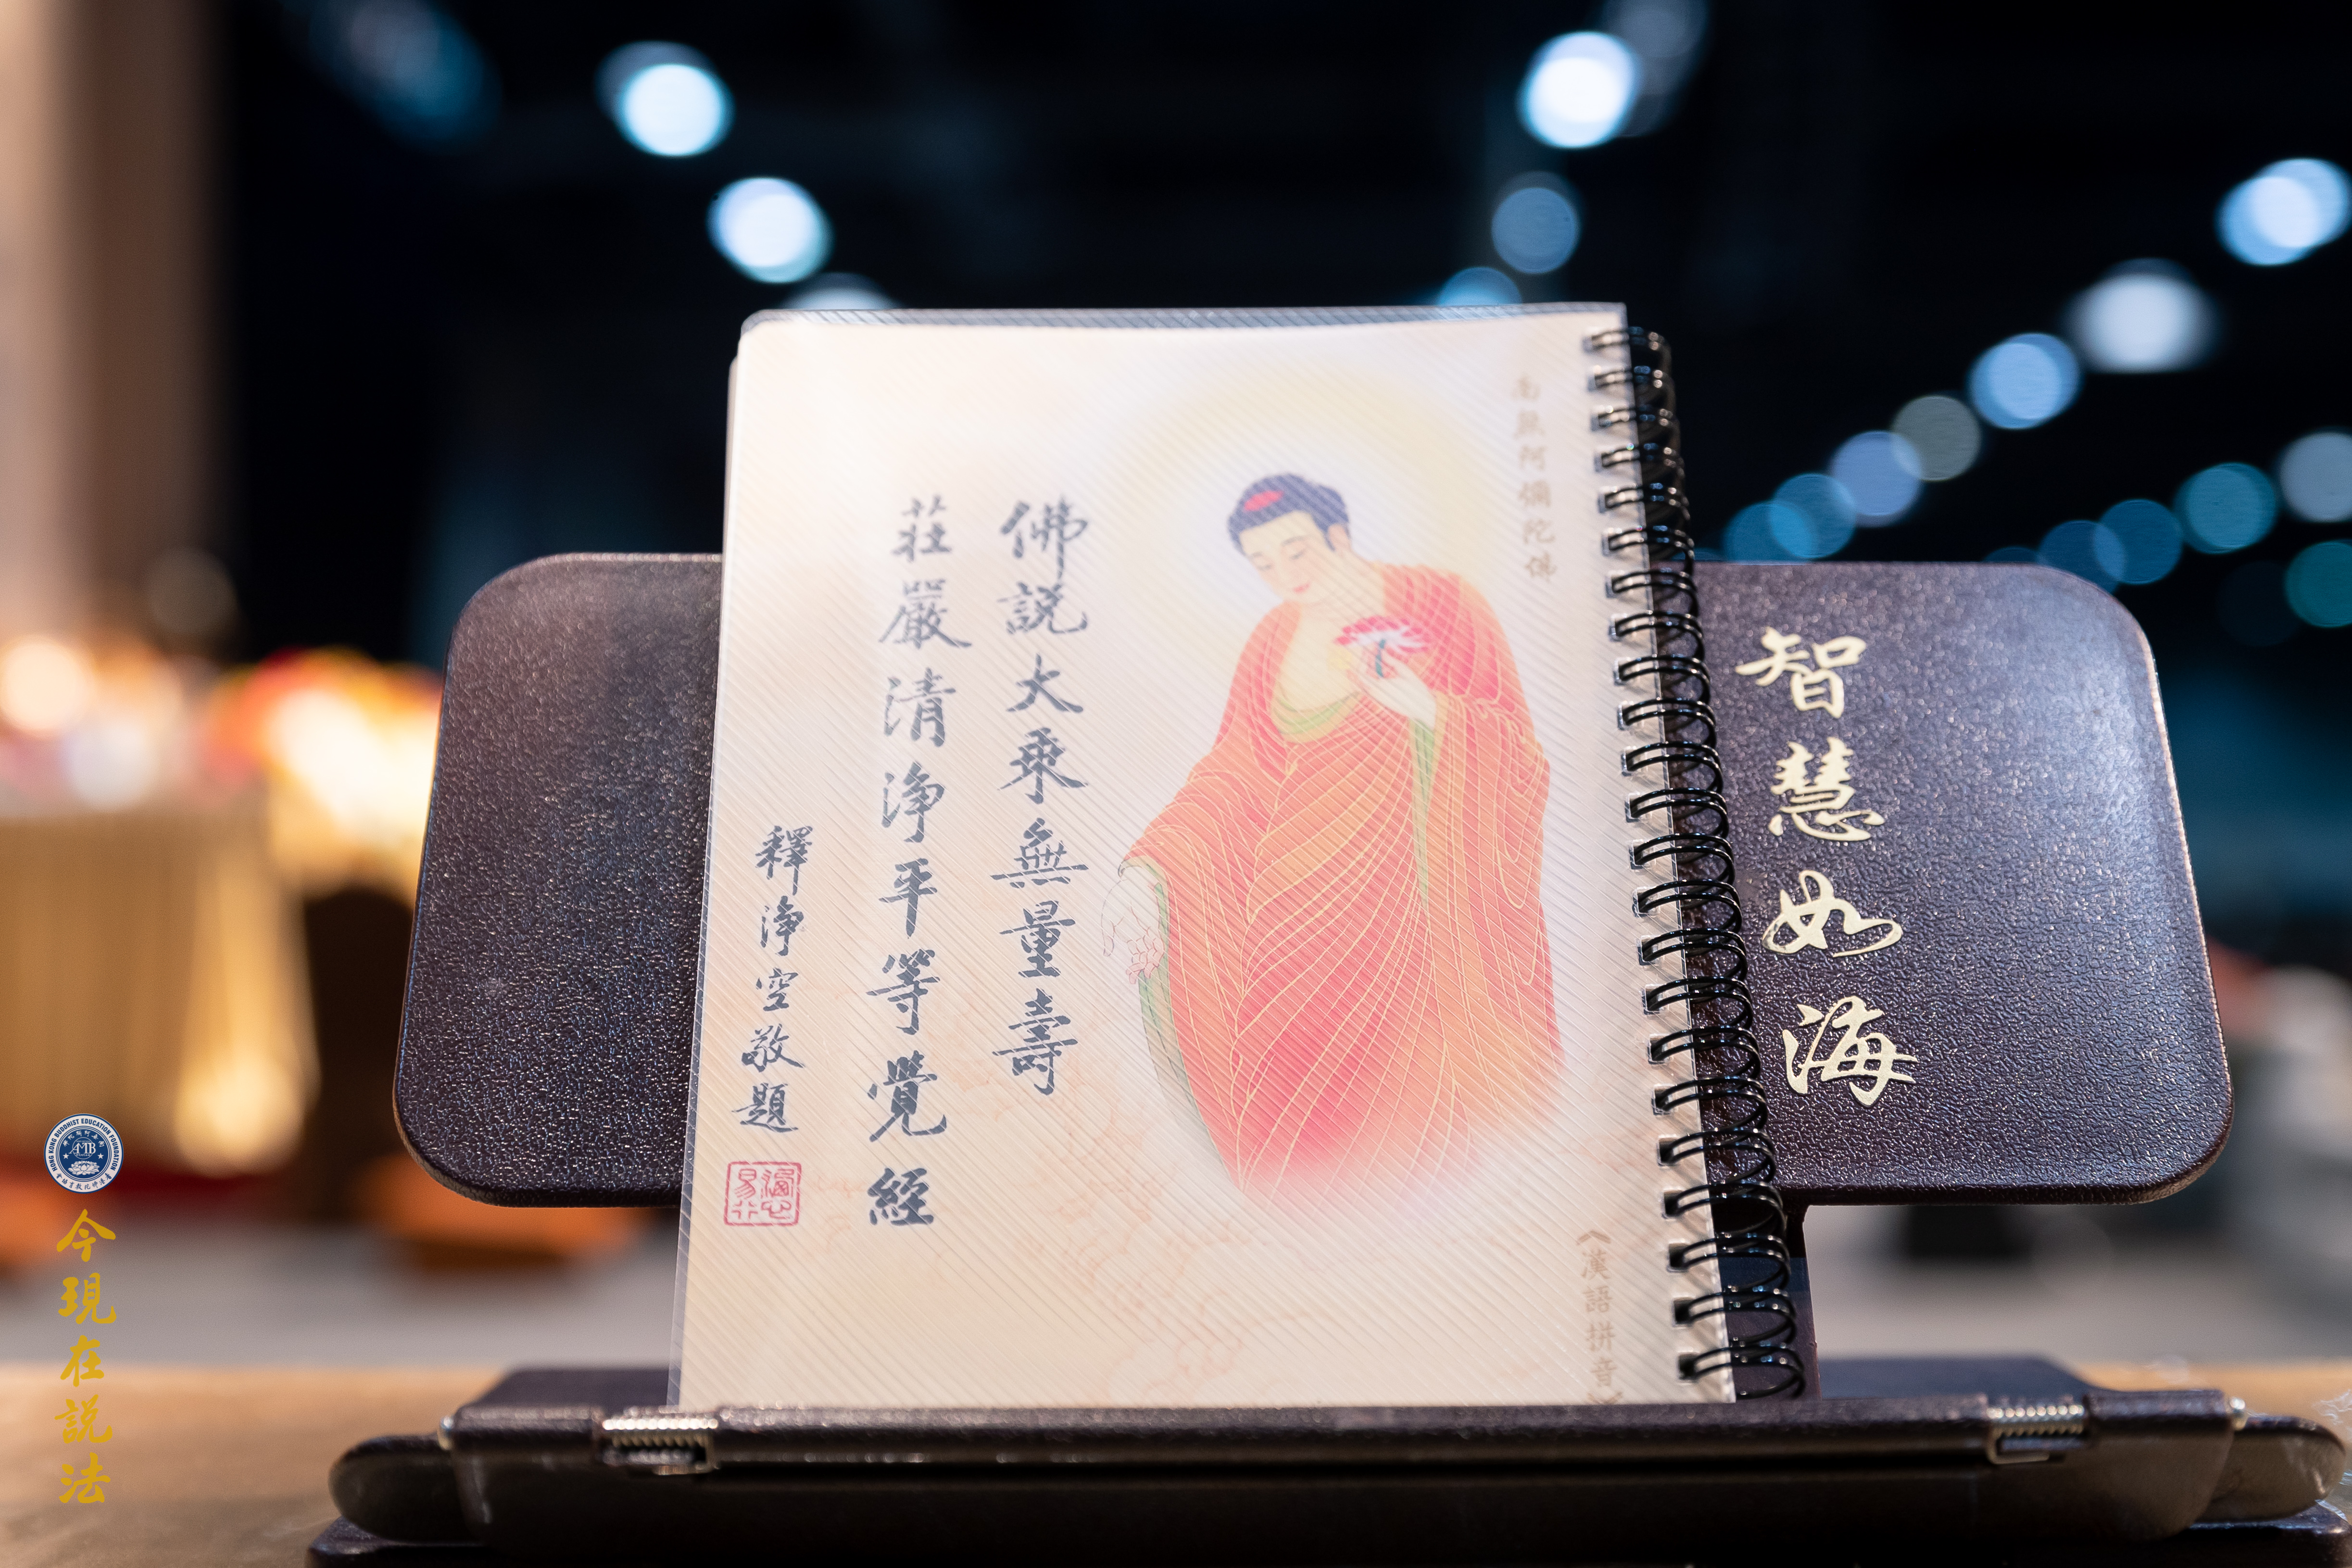 南無阿彌陀佛
佛説大乘無量壽
莊嚴清淨平等覺經
釋淨空敬題
《漢語拼音》
智慧如海
HONG KONG BUDDHIST EDUCATION FOUNDATION
AMTB
今現在説法